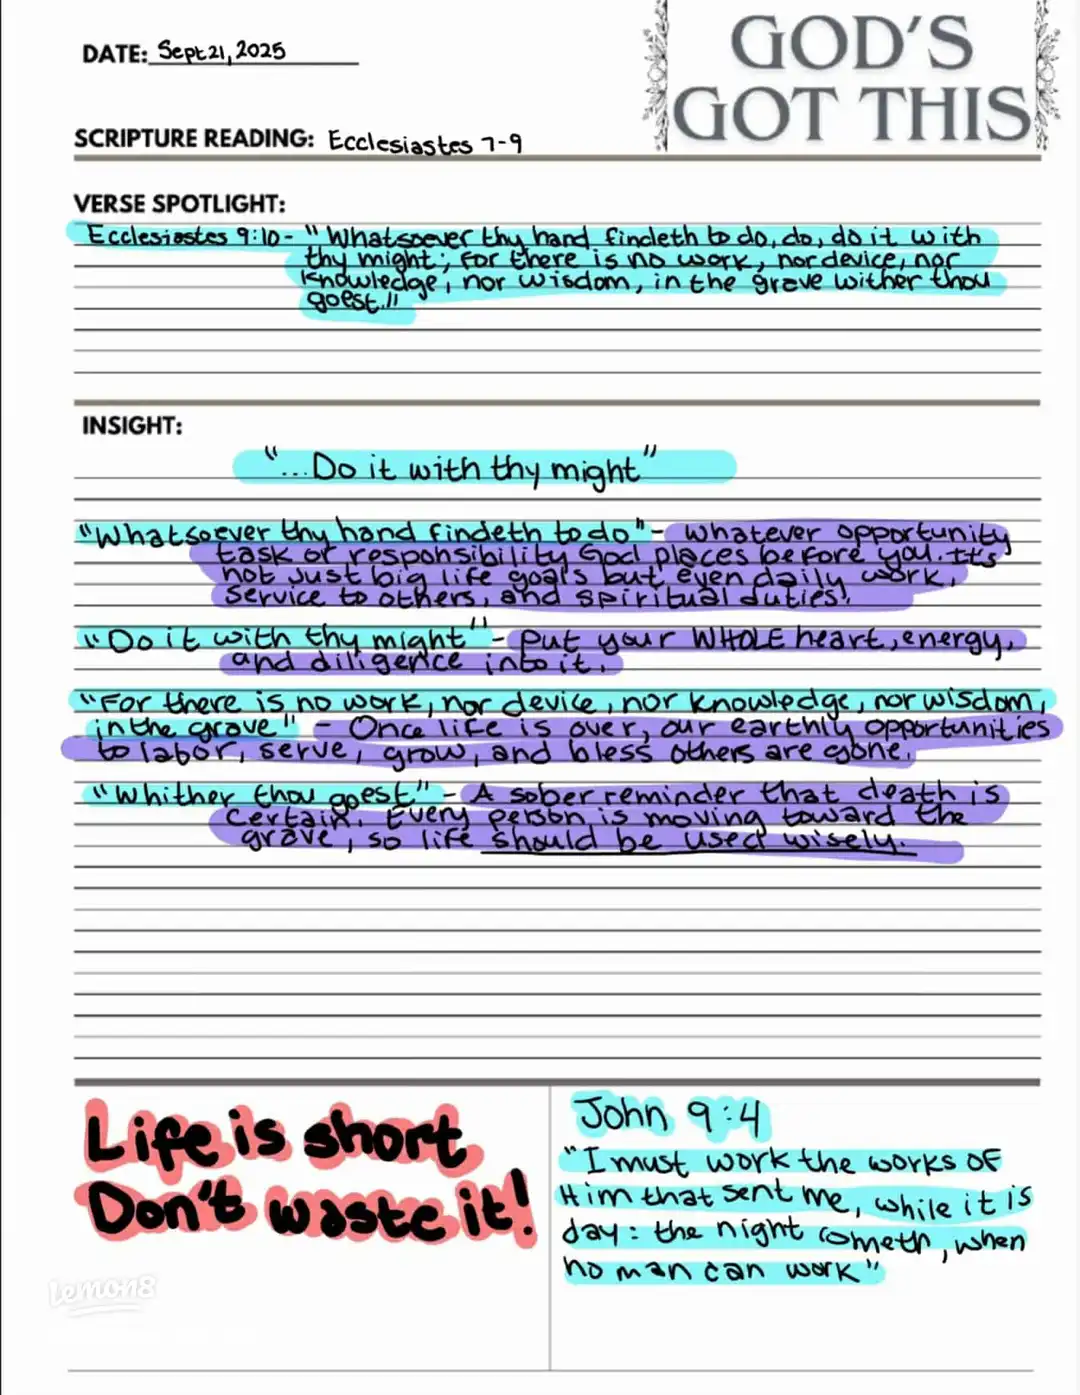 DATE: Sept 21, 2025
GOD'S
GOT THIS
SCRIPTURE READING: Ecclesiastes 7-9
VERSE SPOTLIGHT:
Ecclesiastes 9:10- "Whatsoever thy hand findeth to do, do, do it with
thy might; for there is no work, nor device, nor
knowledge, nor wisdom, in the grave wither thou
goest."
INSIGHT:
"...Do it with thy might"
"Whatsoever thy hand findeth to do"- whatever opportunity
task or responsibility God places before you. It's
not just big life goals but even daily work,
service to others, and spiritual duties.
"Do it with thy might"- put your WHOLE heart, energy,
and diligence into it.
"For there is no work, nor device, nor knowledge, nor wisdom,
in the grave" - Once life is over, our earthly opportunities
to labor, serve, grow, and bless others are gone.
"Whither thou goest"- A sober reminder that death is
certain. Every person is moving toward the
grave, so life should be used wisely.
Life is short
Don't waste it!
John 9:4
"I must work the works of
Him that sent me, while it is
day: the night cometh, when
no man can work"
lemon8